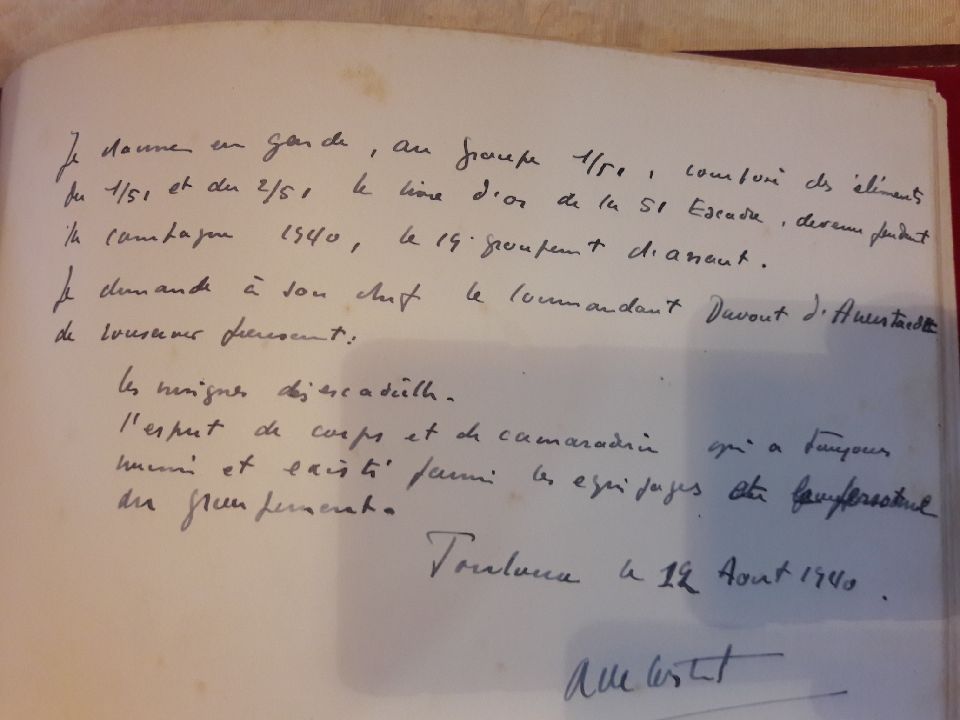 Je donne en garde, au groupe 1/51, composé des éléments
du 1/51 et du 2/51 le livre d'or de la 51 Escadre, devenu pendant
la campagne 1940, le 19 groupement d'assaut.
Je demande à son chef le Commandant Davout d'Auerstaedt
de conserver jalousement:
les insignes des escadrilles.
l'esprit de corps et de camaraderie qui a toujours
et existé parmi les équipages et le personnel
du groupement.
Toulouse le 12 Aout 1940.